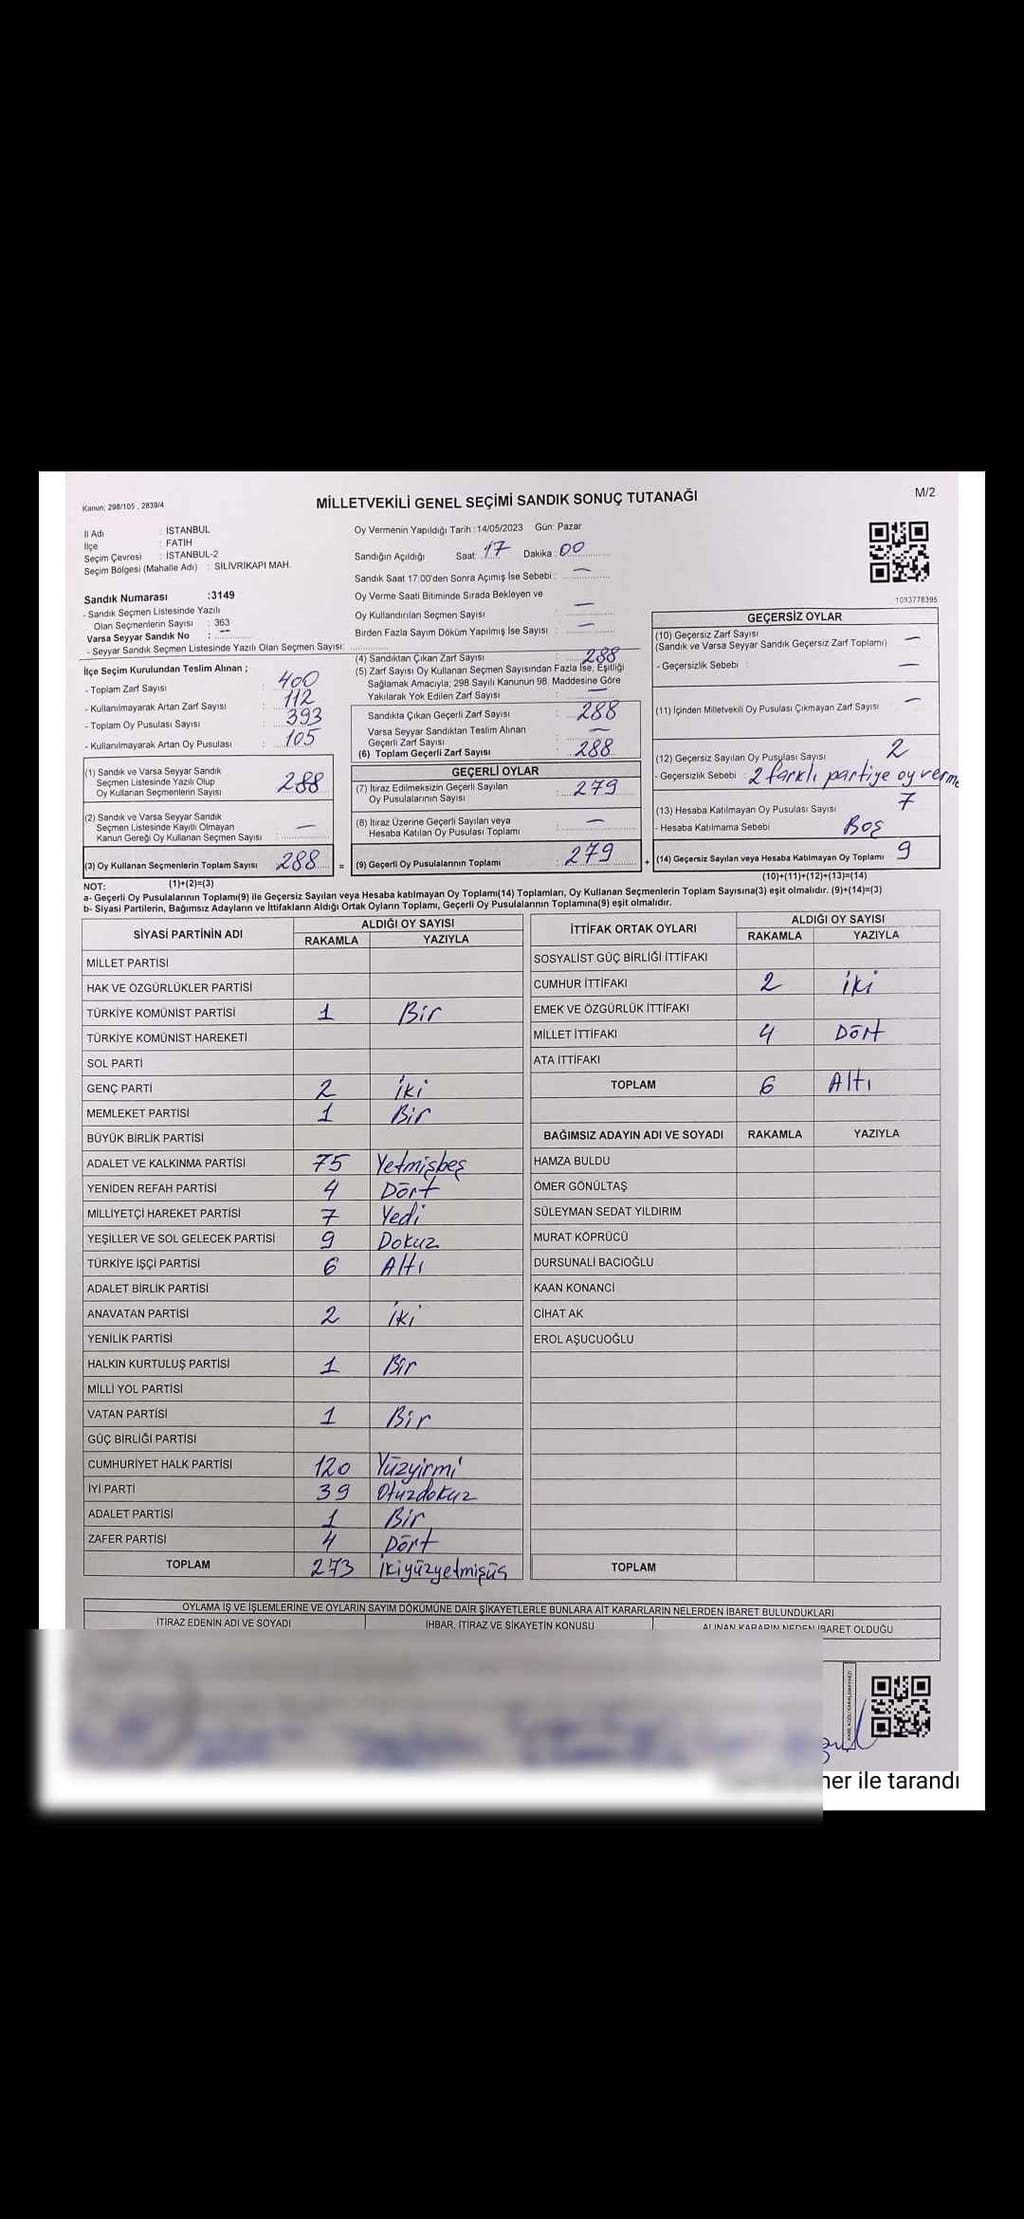 Kanun; 298/105 , 2839/4
MİLLETVEKİLİ GENEL SEÇİMİ SANDIK SONUÇ TUTANAĞI
M/2
İl Adı : İSTANBUL
İlçe : FATİH
Seçim Çevresi : İSTANBUL-2
Seçim Bölgesi (Mahalle Adı) : SİLİVRİKAPI MAH.
Sandık Numarası :3149
- Sandık Seçmen Listesinde Yazılı
Olan Seçmenlerin Sayısı : 363
Varsa Seyyar Sandık No : —
- Seyyar Sandık Seçmen Listesinde Yazılı Olan Seçmen Sayısı:
Oy Vermenin Yapıldığı Tarih :14/05/2023 Gün: Pazar
Sandığın Açıldığı Saat: 17 Dakika : 00
Sandık Saat 17:00'den Sonra Açımış İse Sebebi : —
Oy Verme Saati Bitiminde Sırada Bekleyen ve
Oy Kullandırılan Seçmen Sayısı —
Birden Fazla Sayım Döküm Yapılmış İse Sayısı : —
1093778395
İlçe Seçim Kurulundan Teslim Alınan ;
- Toplam Zarf Sayısı : 400
- Kullanılmayarak Artan Zarf Sayısı : 112
- Toplam Oy Pusulası Sayısı : 393
- Kullanılmayarak Artan Oy Pusulası : 105
(1) Sandık ve Varsa Seyyar Sandık
Seçmen Listesinde Yazılı Olup
Oy Kullanan Seçmenlerin Sayısı 288
(2) Sandık ve Varsa Seyyar Sandık
Seçmen Listesinde Kayıtlı Olmayan
Kanun Gereği Oy Kullanan Seçmen Sayısı —
(3) Oy Kullanan Seçmenlerin Toplam Sayısı 288 =
(1)+(2)=(3)
(4) Sandıktan Çıkan Zarf Sayısı : 288
(5) Zarf Sayısı Oy Kullanan Seçmen Sayısından Fazla İse, Eşitliği
Sağlamak Amacıyla; 298 Sayılı Kanunun 98. Maddesine Göre
Yakılarak Yok Edilen Zarf Sayısı : —
Sandıkta Çıkan Geçerli Zarf Sayısı : 288
Varsa Seyyar Sandıktan Teslim Alınan
Geçerli Zarf Sayısı : —
(6) Toplam Geçerli Zarf Sayısı : 288
GEÇERLİ OYLAR
(7) İtiraz Edilmeksizin Geçerli Sayılan
Oy Pusulalarının Sayısı : 279
(8) İtiraz Üzerine Geçerli Sayılan veya
Hesaba Katılan Oy Pusulası Toplamı : —
(9) Geçerli Oy Pusulalarının Toplamı : 279 +
GEÇERSİZ OYLAR
(10) Geçersiz Zarf Sayısı
(Sandık ve Varsa Seyyar Sandık Geçersiz Zarf Toplamı) —
- Geçersizlik Sebebi : —
(11) İçinden Milletvekili Oy Pusulası Çıkmayan Zarf Sayısı —
(12) Geçersiz Sayılan Oy Pusulası Sayısı 2
- Geçersizlik Sebebi : 2 farklı partiye oy verme
(13) Hesaba Katılmayan Oy Pusulası Sayısı 7
- Hesaba Katılmama Sebebi Boş
(14) Geçersiz Sayılan veya Hesaba Katılmayan Oy Toplamı 9
(10)+(11)+(12)+(13)=(14)
NOT:
a- Geçerli Oy Pusulalarının Toplamı(9) ile Geçersiz Sayılan veya Hesaba katılmayan Oy Toplamı(14) Toplamları, Oy Kullanan Seçmenlerin Toplam Sayısına(3) eşit olmalıdır. (9)+(14)=(3)
b- Siyasi Partilerin, Bağımsız Adayların ve İttifakların Aldığı Ortak Oyların Toplamı, Geçerli Oy Pusulalarının Toplamına(9) eşit olmalıdır.
SİYASİ PARTİNİN ADI ALDIĞI OY SAYISI
RAKAMLA YAZIYLA
MİLLET PARTİSİ
HAK VE ÖZGÜRLÜKLER PARTİSİ
TÜRKİYE KOMÜNİST PARTİSİ 1 Bir
TÜRKİYE KOMÜNİST HAREKETİ
SOL PARTİ
GENÇ PARTİ 2 İki
MEMLEKET PARTİSİ 1 Bir
BÜYÜK BİRLİK PARTİSİ
ADALET VE KALKINMA PARTİSİ 75 Yetmişbeş
YENİDEN REFAH PARTİSİ 4 Dört
MİLLİYETÇİ HAREKET PARTİSİ 7 Yedi
YEŞİLLER VE SOL GELECEK PARTİSİ 9 Dokuz
TÜRKİYE İŞÇİ PARTİSİ 6 Altı
ADALET BİRLİK PARTİSİ
ANAVATAN PARTİSİ 2 İki
YENİLİK PARTİSİ
HALKIN KURTULUŞ PARTİSİ 1 Bir
MİLLİ YOL PARTİSİ
VATAN PARTİSİ 1 Bir
GÜÇ BİRLİĞİ PARTİSİ
CUMHURİYET HALK PARTİSİ 120 Yüzyirmi
İYİ PARTİ 39 Otuzdokuz
ADALET PARTİSİ 1 Bir
ZAFER PARTİSİ 4 Dört
TOPLAM 273 İkiyüzyetmişüç
İTTİFAK ORTAK OYLARI ALDIĞI OY SAYISI
RAKAMLA YAZIYLA
SOSYALİST GÜÇ BİRLİĞİ İTTİFAKI
CUMHUR İTTİFAKI 2 İki
EMEK VE ÖZGÜRLÜK İTTİFAKI
MİLLET İTTİFAKI 4 Dört
ATA İTTİFAKI
TOPLAM 6 Altı
BAĞIMSIZ ADAYIN ADI VE SOYADI RAKAMLA YAZIYLA
HAMZA BULDU
ÖMER GÖNÜLTAŞ
SÜLEYMAN SEDAT YILDIRIM
MURAT KÖPRÜCÜ
DURSUNALİ BACIOĞLU
KAAN KONANCİ
CİHAT AK
EROL AŞUCUOĞLU
TOPLAM
OYLAMA İŞ VE İŞLEMLERİNE VE OYLARIN SAYIM DÖKÜMÜNE DAİR ŞİKAYETLERLE BUNLARA AİT KARARLARIN NELERDEN İBARET BULUNDUKLARI
İTİRAZ EDENİN ADI VE SOYADI İHBAR, İTİRAZ VE ŞİKAYETİN KONUSU ALINAN KARARIN NEDEN İBARET OLDUĞU
ile tarandı